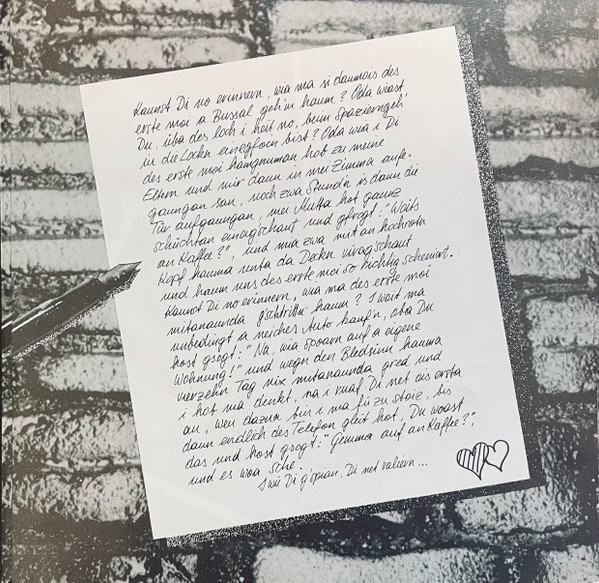 Kannst Di no erinnern, wia ma si damois des
erste moi a Bussal geb'n haum? Oda wiast
Du, üba des loch i heit no, beim Spazierngeh'
in die Locken einegfoin bist? Oda wia i Di
des erste moi hamgnuman hob zu meine
Eltern und mir dann in mei Zimma aufe-
gaungan san, noch zwa Stund'n is dann die
Tür aufgaungan, mei Mutta hot ganz
schüchtan einagschaut und gfrogt: "Woits
an Kaffee?", und mia zwa mit an hochrotn
Kopf hamma unta da Decken viragschaut
und haum uns des erste moi so richtig scheniert.
Kannst Di no erinnern, wia ma des erste moi
mitanaunda gschtrittn haum? I woit ma
unbedingt a neiches Auto kauf'n, oba Du
host gsogt: "Na, wia spoarn auf a eigene
Wohnung!" und wegn den Bledsinn hamma
vierzehn Tag nix mitanaunda gred und
i hob ma denkt, na i ruaf Di net ois ersta
an, weu dazua bin i ma fü zu stoiz, bis
dann endlich des Telefon gleit hot, Du woast
das und host gsogt: "Gemma auf an Kaffee?",
und es woa sche.
I wü Di g'spian, Di net valiern...